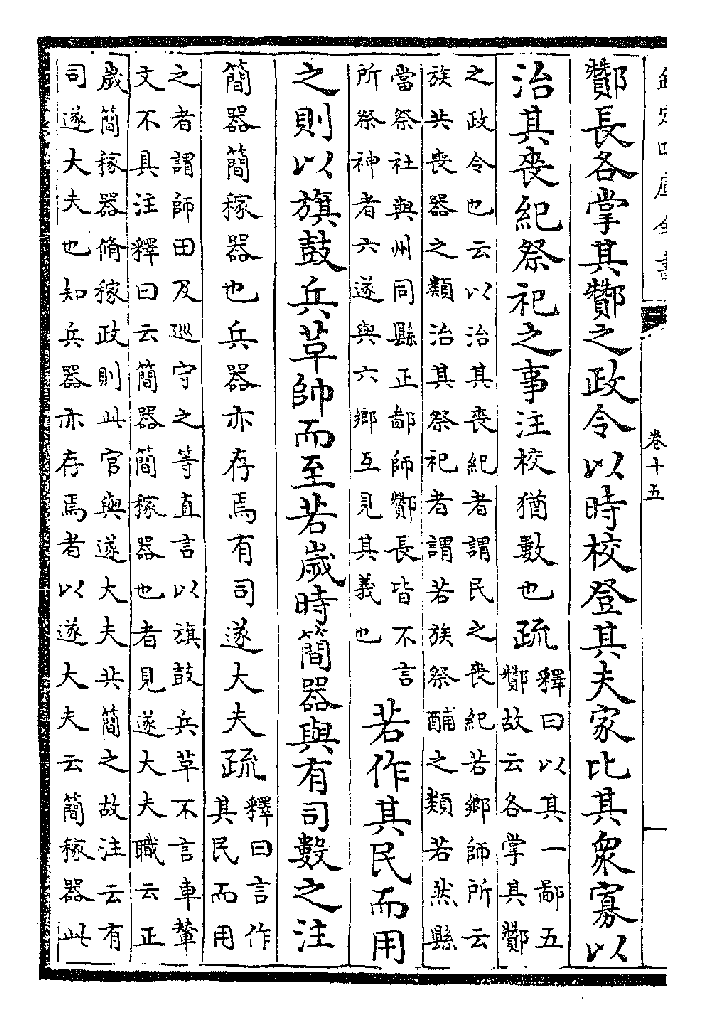 欽定四庫全書 卷十五
酇長各掌其酇之政令以時校登其夫家比其衆寡以
治其喪紀祭祀之事注校猶數也疏
釋曰以其一鄙五
酇故云各掌其酇
之政令也云以治其喪紀者謂民之喪紀若鄉師所云
族共喪器之類治其祭祀者謂若族祭酺之類若然縣
當祭社與州同縣正鄙師酇長皆不言
所祭神者六遂與六鄉互見其義也
若作其民而用
之則以旗鼓兵革帥而至若歲時簡器與有司數之注
簡器簡稼器也兵器亦存焉有司遂大夫疏
釋曰言作
其民而用
之者謂師田及廵守之等直言以旗鼓兵革不言車輦
文不具注釋曰云簡器簡稼器也者見遂大夫職云正
歲簡稼器脩稼政則此官與遂大夫共簡之故注云有
司遂大夫也知兵器亦存焉者以遂大夫云簡稼器此